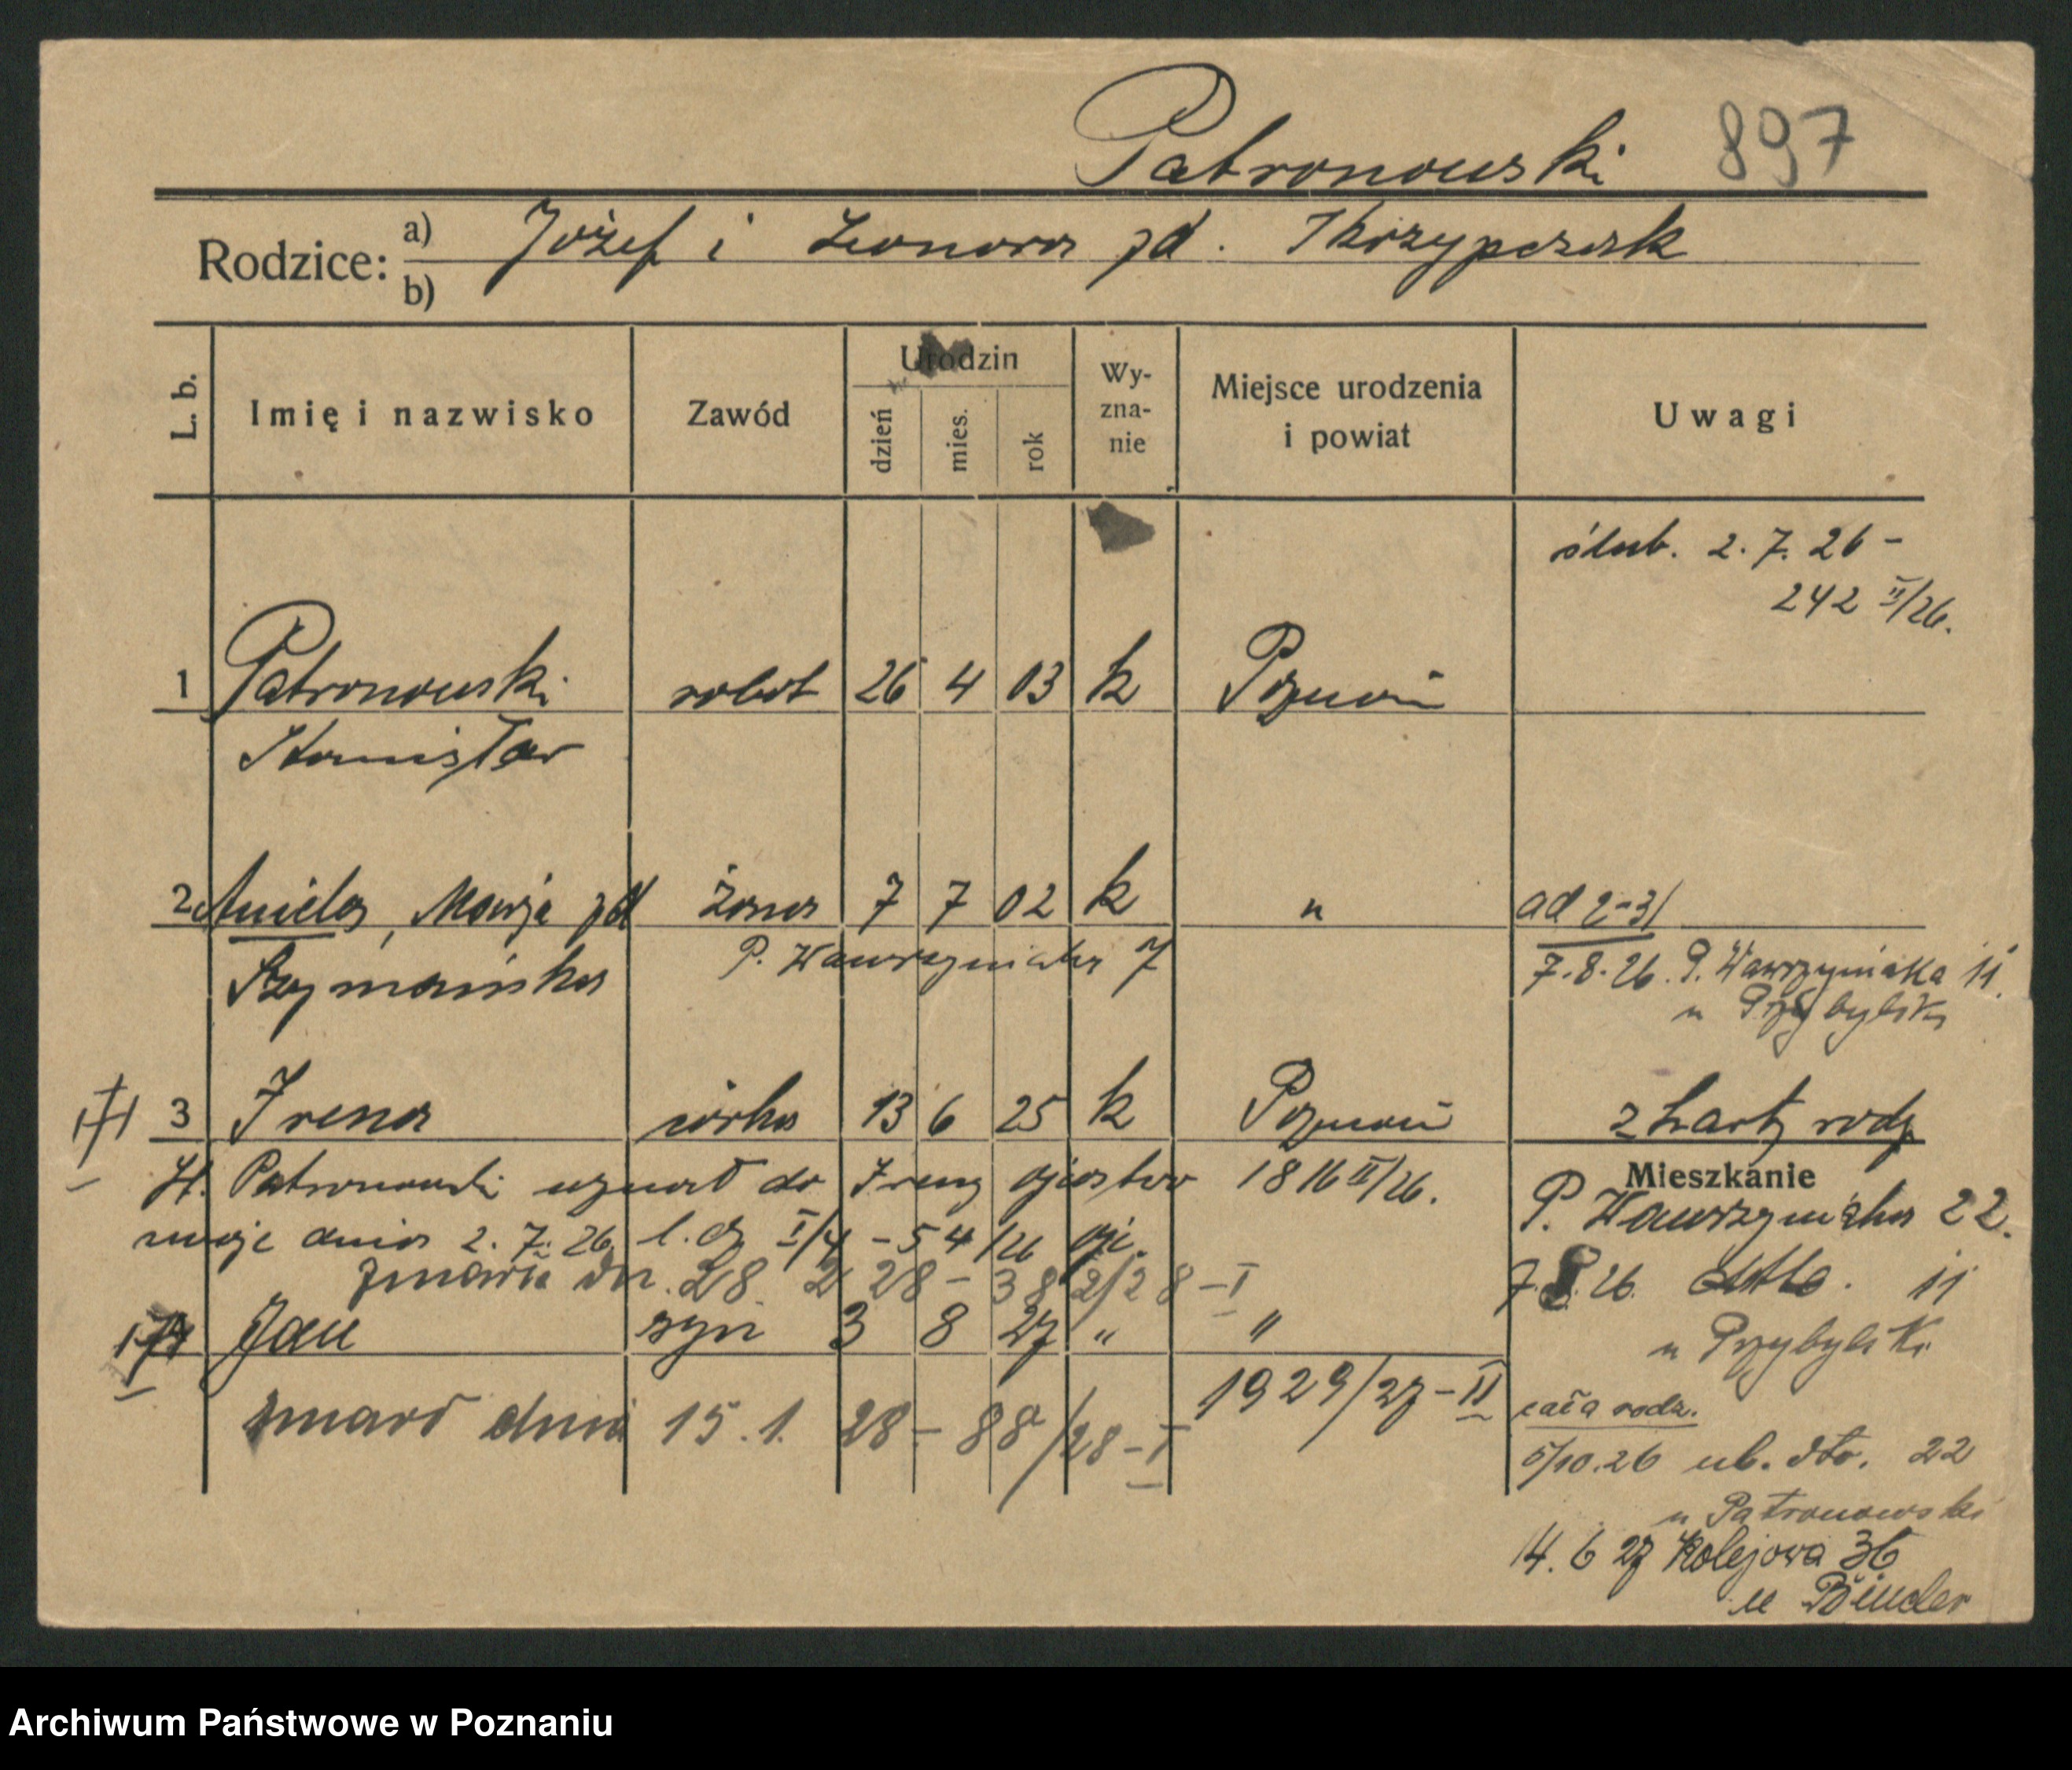 Patronowski 897
Rodzice: a) Józef i Leonora zd. Skrzypczak
b)
L. b. Imię i nazwisko Zawód Urodzin dzień mies. rok Wy-zna-nie Miejsce urodzenia i powiat Uwagi
ślub. 2. 7. 26 –
242 II/26.
1 Patronowski robot 26 4 03 k Poznań
Stanisław
2 Aniela, Marja zd żona 7 7 02 k " ad 2-3/
Szymańska P. Wawrzyniaka 7 7.8.26. P. Wawrzyniaka 11.
u Przybylski
3 Irena córka 13 6 25 k Poznań z karty rodz
St. Patronowski uznał do Ireny ojcostwo 1816 II/26.
swoje dnia 2. 7. 26. l. dz I/4 – 54/26
zmarła dn. 28 2 28 – 382/28 – I
Jan syn 3 8 27 " "
1929/27 – II
zmarł dnia 15. 1. 28 – 88/28 – I
Mieszkanie
P. Wawrzyniaka 22.
7.8.26. dtto. 11
u Przybylski
cała rodz.
5/10.26 ub. dto. 22
u Patronowski
14. 6 27 Kolejowa 36
u Binder
Archiwum Państwowe w Poznaniu